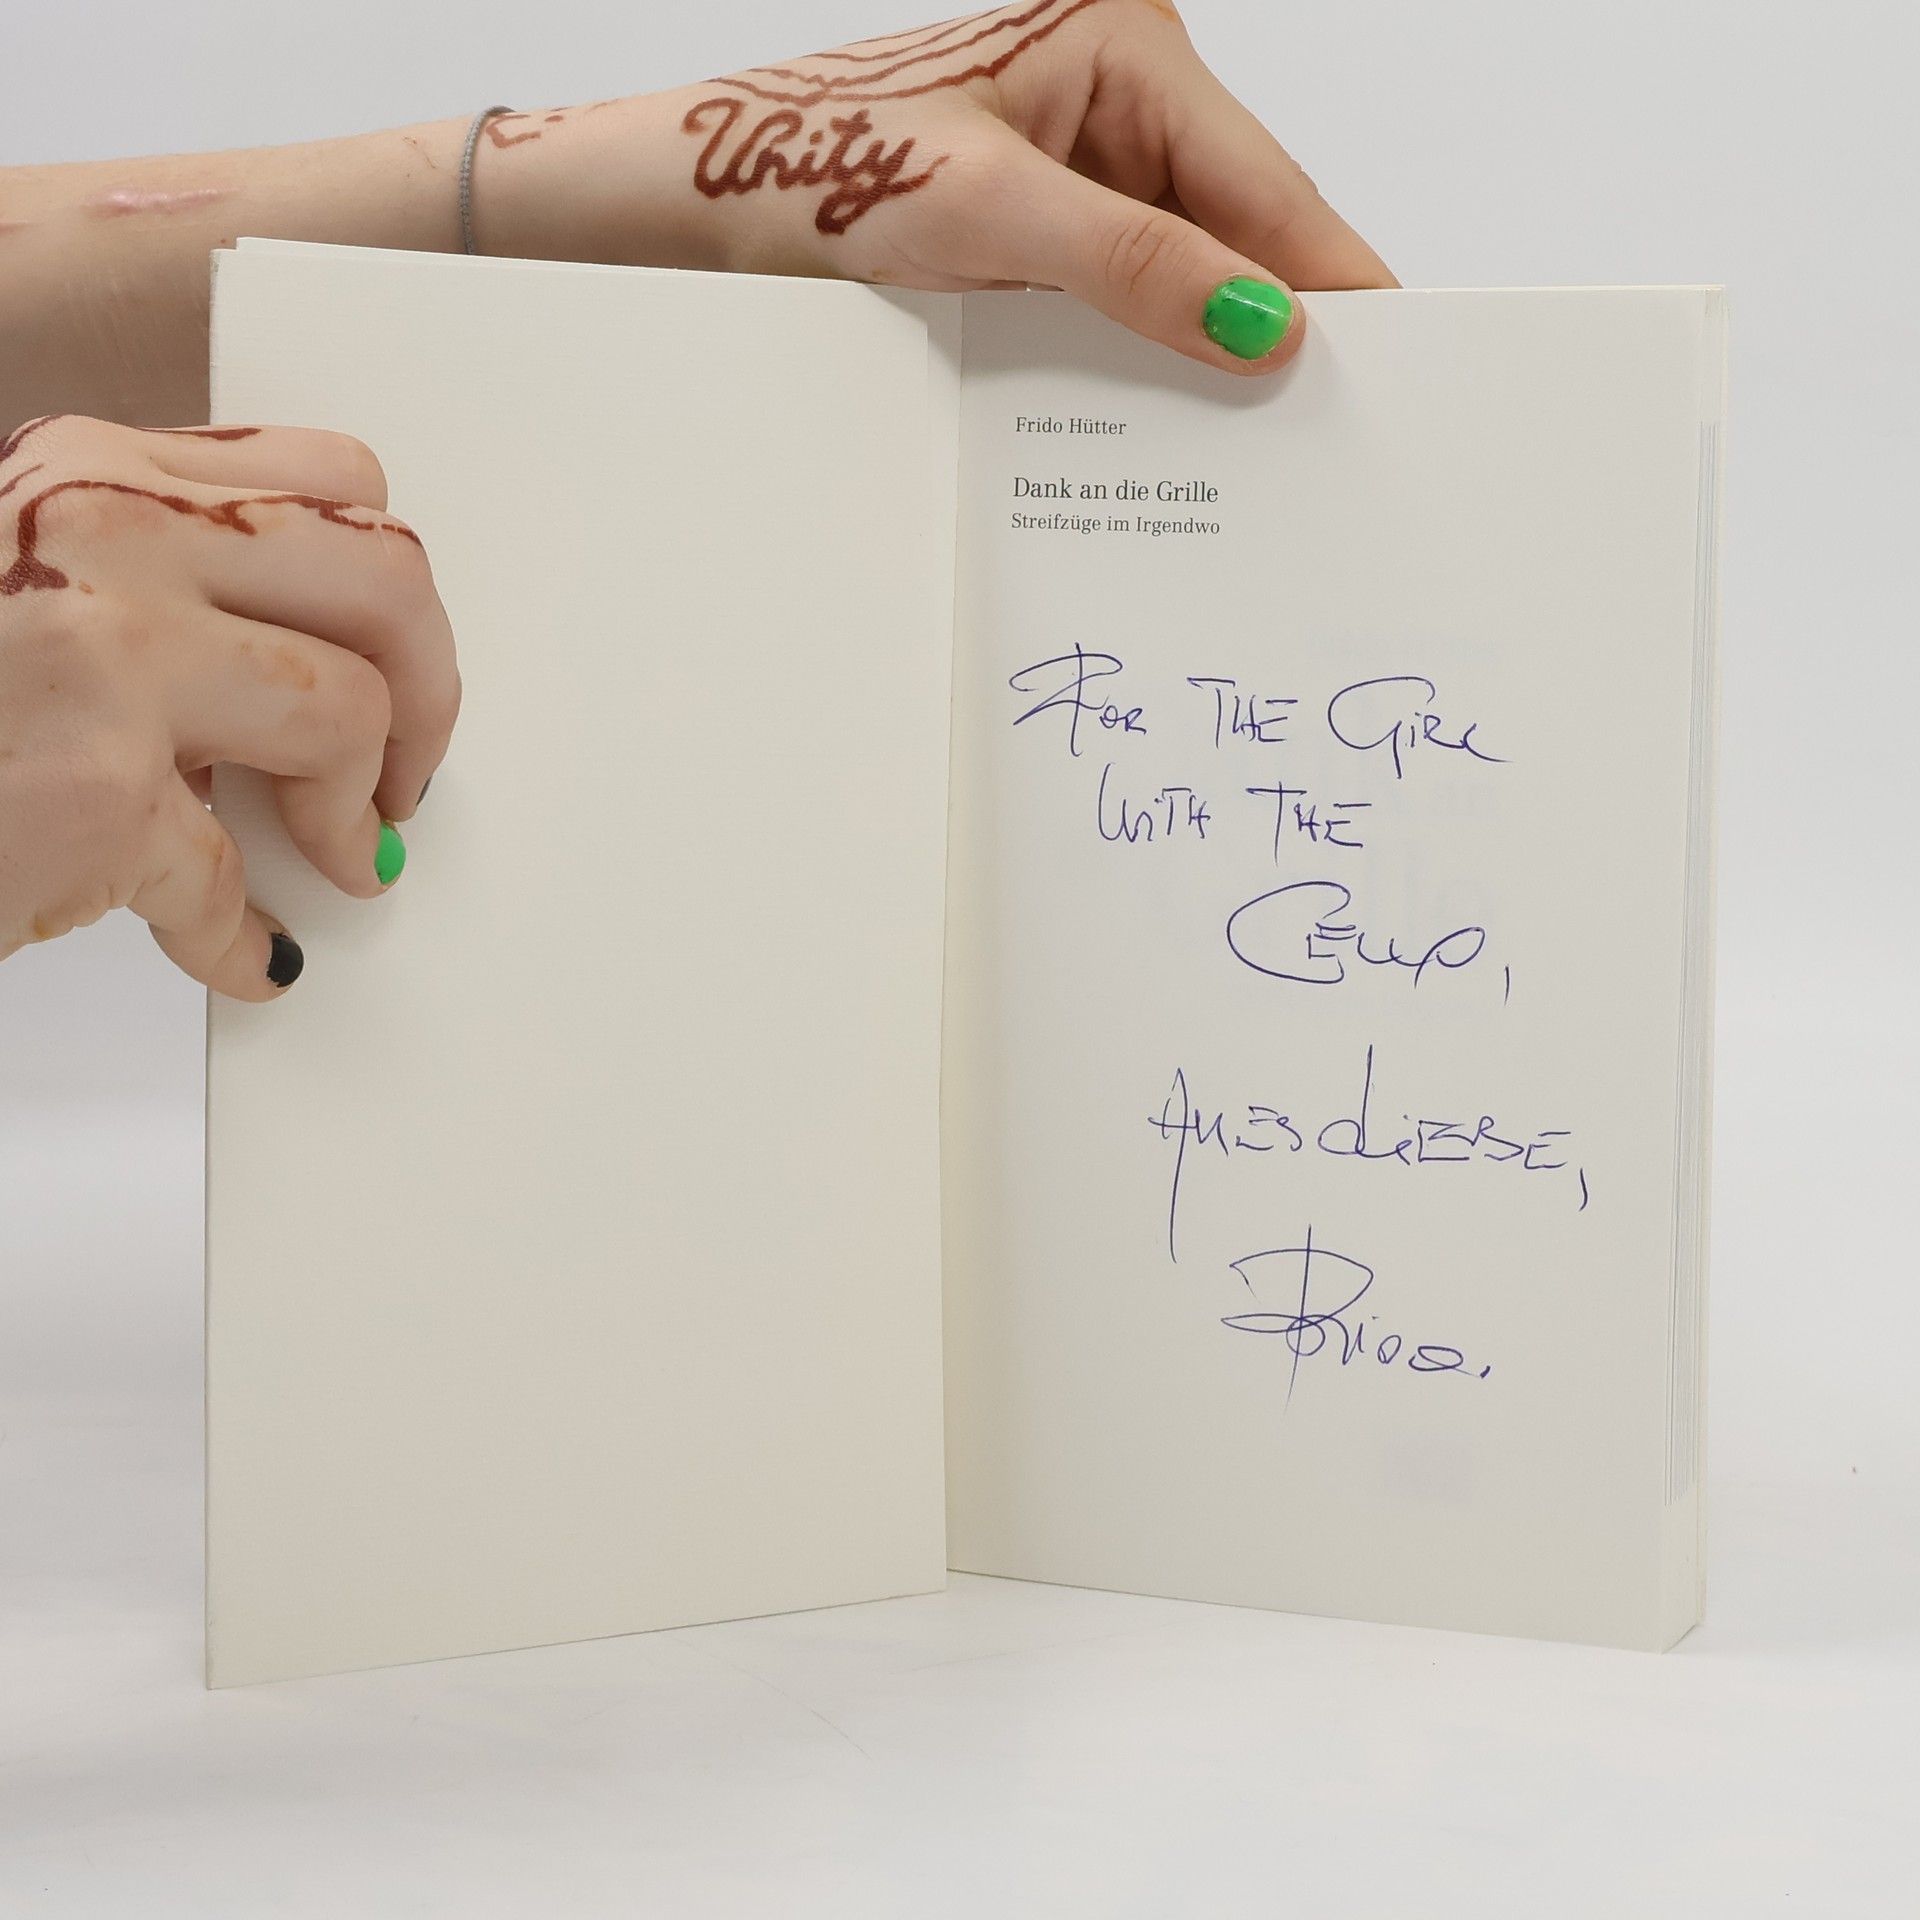 Unity
Frido Hütter
Dank an die Grille
Streifzüge im Irgendwo
FOR THE GIRL
WITH THE
CELLO,
ALLES LIEBE,
FRIDO.